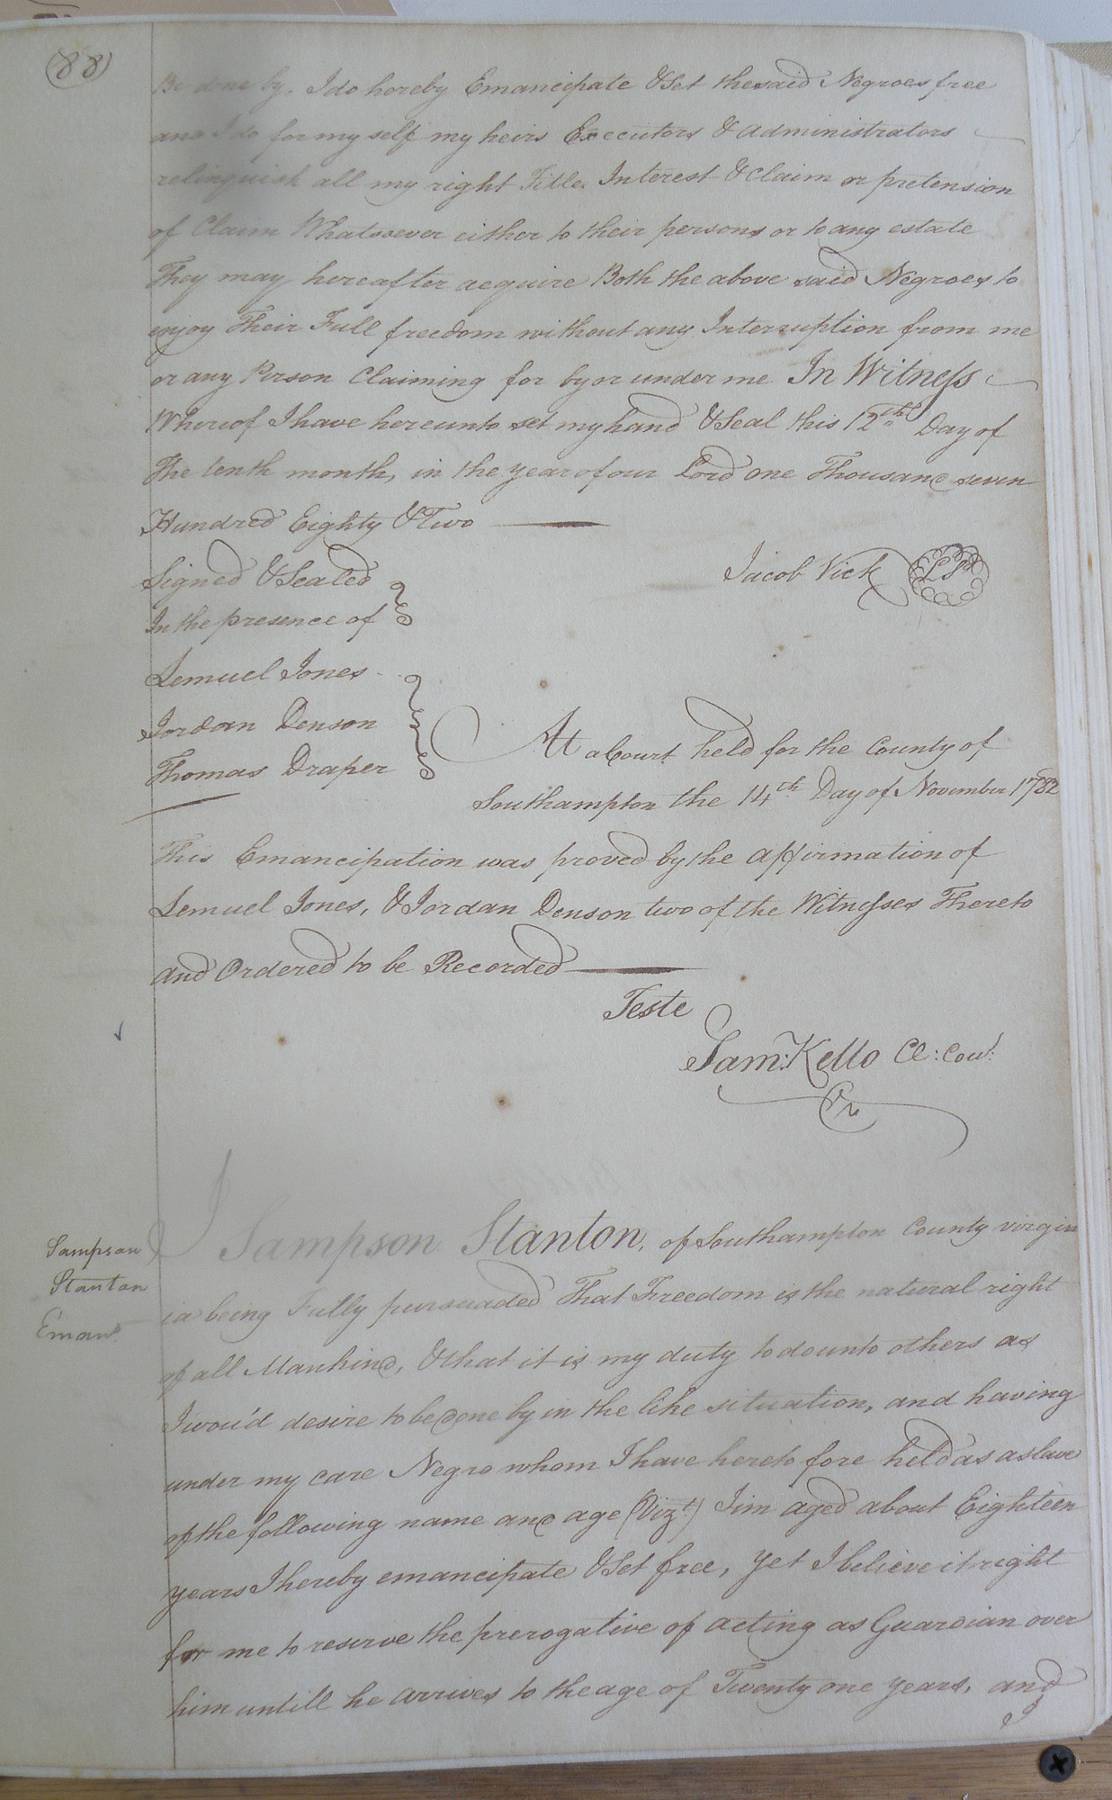 (88)
Be done by. I do hereby Emancipate & Set the said Negroes free
and I do for my self my heirs Executors & administrators
relinquish all my right Title, Interest & Claim or pretension
of Claim Whatsoever either to their persons or to any estate
They may hereafter acquire Both the above said Negroes to
enjoy Their Full freedom without any Interruption from me
or any Person Claiming for by or under me In Witness
Whereof I have hereunto set my hand & Seal this 12th Day of
The tenth month, in the year of our Lord one Thousand seven
Hundred Eighty & Two
Signed & Sealed
In the presence of
Jacob Vick LS
Lemuel Jones
Jordan Denson
Thomas Draper
At a Court held for the County of
Southampton the 14th Day of November 1782
This Emancipation was proved by the affirmation of
Lemuel Jones, & Jordan Denson two of the Witnesses Thereto
and Ordered to be Recorded
Teste
Sam: Kello Cl: Cou:
Sampson
Stanton
Eman
I Sampson Stanton, of Southampton County virgin
ia being Fully pursuaded That Freedom is the natural right
of all Mankind, & that it is my duty to do unto others as
I wou'd desire to be done by in the like situation, and having
under my care Negro whom I have hereto fore held as a slave
of the following name and age (Vizt) Jim aged about Eighteen
years I hereby emancipate & Set free, yet I believe it right
for me to reserve the prerogative of acting as Guardian over
him untill he arrives to the age of Twenty one years, and
I